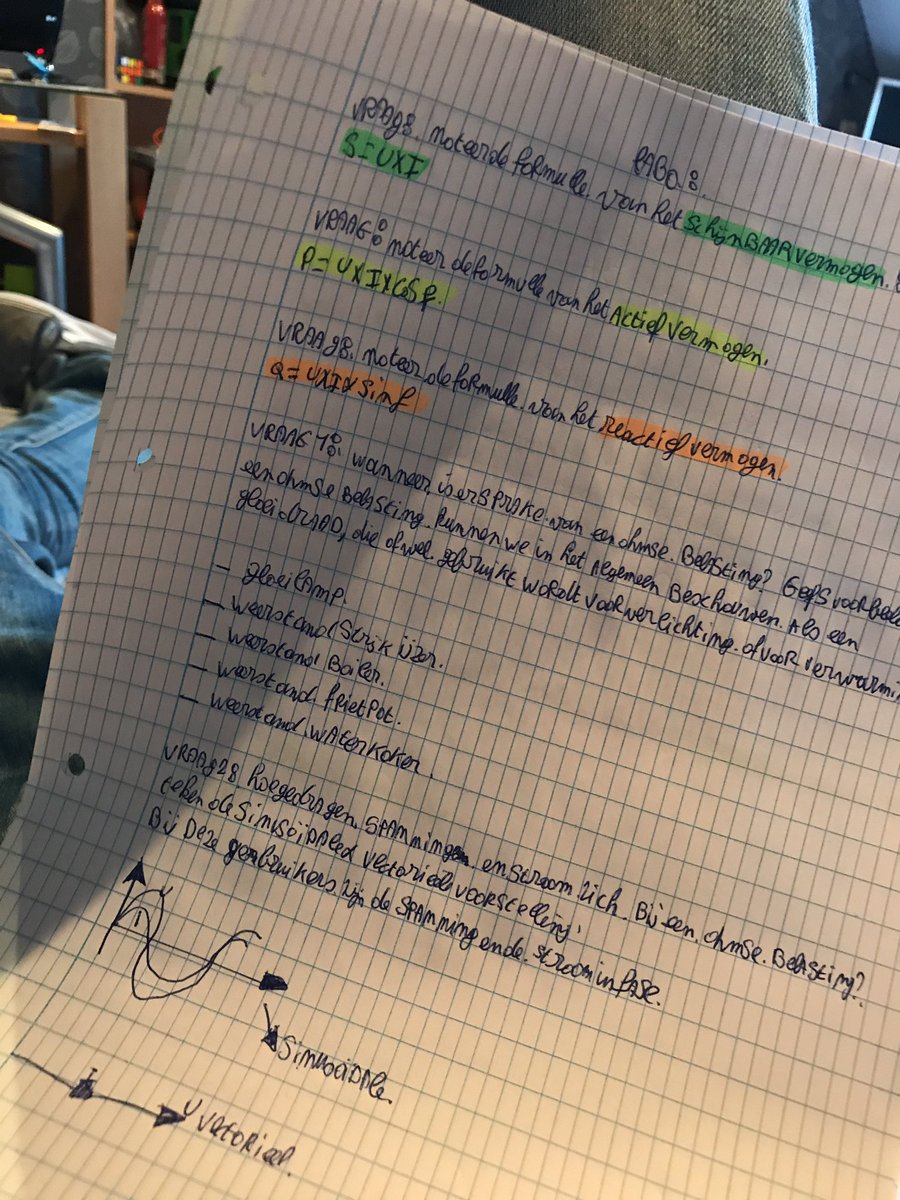 LABO.8.
VRAAg8. noteer de formulle. van het SchijnBAAR vermogen.
S=UXI
VRAAG8 noteer de formulle van het Actief vermogen.
P=UXIXCoSφ.
VRAAg8. noteer de formulle. van het reactief vermogen.
Q=UXIXSinφ
VRAAG18. wanneer is er SPRAKE van een ohmse. BelASting? Geef5 voorbeel
een ohmse BelASting. kunnen we in het Algemeen Beschouwen. Als een
gloeidRAAD, die ofwel. gebruikt Wordt voor verlichting. of voor verwarmi
- gloeilAmp.
- weerstand StrijkiJzer.
- weerstand Boiler.
- weerstand. frietPot.
- weerstand. wAterkoker.
VRAAg28 hoe gedragen. SPAnningen en Stroom Zich. Bij een. ohmse. BelASting?
teken de SinusoïdAle en vectoriële voorstelling.
Bij Deze gebruikers zijn de SPAnning en de. Stroom in fASe.
SinusoïDAle.
I
U vectorieel.